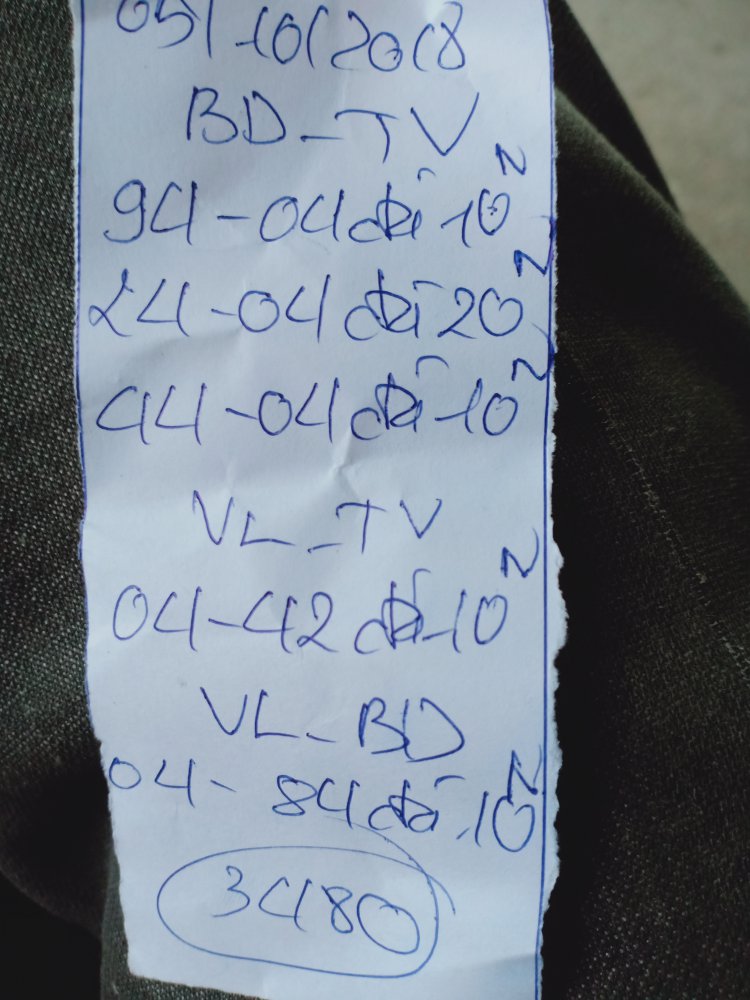 05/10/2018
BD-TV
94-04 đá 10 N
24-04 đá 20 N
44-04 đá 10 N
VL-TV
04-42 đá 10 N
VL-BD
04-84 đá 10 N
3480